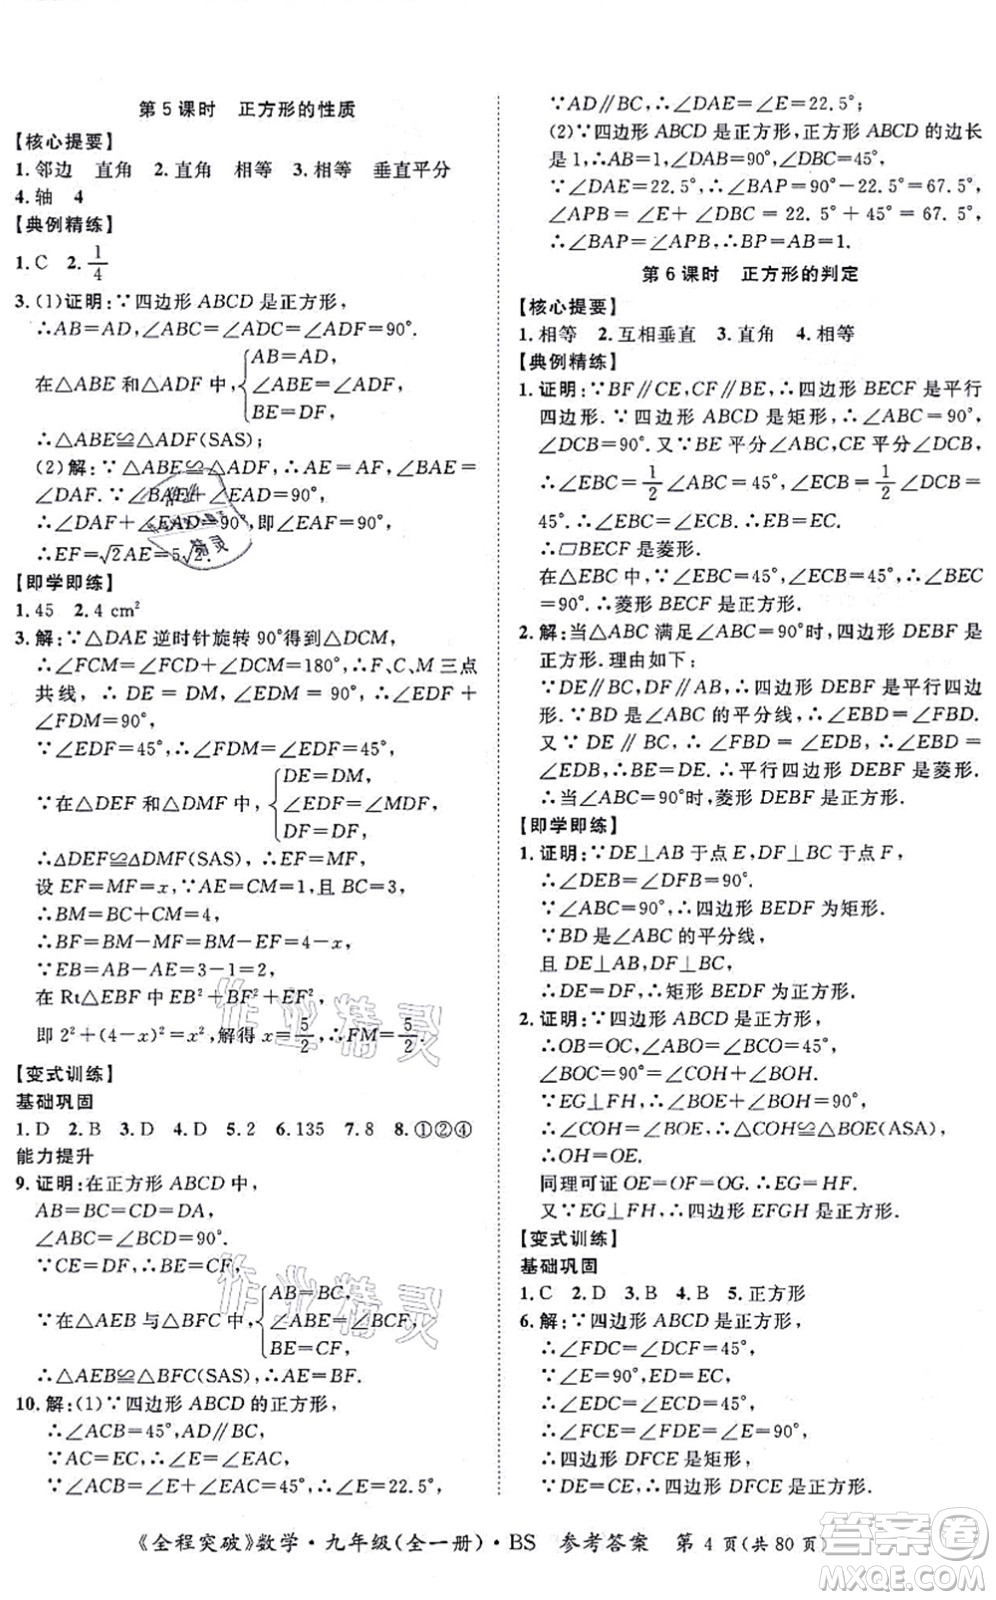 第5课时　正方形的性质
【核心提要】
1.邻边　直角　2.直角　相等　3.相等　垂直平分
4.轴　4
【典例精练】
1.C　2.1/4
3.(1)证明:∵四边形ABCD是正方形，
∴AB=AD,∠ABC=∠ADC=∠ADF=90°.
在△ABE和△ADF中,{AB=AD,
∠ABE=∠ADF,
BE=DF,
∴△ABE≌△ADF(SAS);
(2)解:∵△ABE≌△ADF,∴AE=AF,∠BAE=
∠DAF.∵∠BAE+∠EAD=90°,
∴∠DAF+∠EAD=90°,即∠EAF=90°.
∴EF=√2AE=5√2.
【即学即练】
1.45　2.4 cm²
3.解:∵△DAE逆时针旋转90°得到△DCM,
∴∠FCM=∠FCD+∠DCM=180°,∴F、C、M三点
共线，∴DE=DM,∠EDM=90°,∴∠EDF+
∠FDM=90°,
∵∠EDF=45°,∴∠FDM=∠EDF=45°,
∵在△DEF和△DMF中,{DE=DM,
∠EDF=∠MDF,
DF=DF,
∴△DEF≌△DMF(SAS),∴EF=MF,
设EF=MF=x,∵AE=CM=1,且BC=3,
∴BM=BC+CM=4,
∴BF=BM-MF=BM-EF=4-x,
∵EB=AB-AE=3-1=2,
在Rt△EBF中EB²+BF²=EF²,
即2²+(4-x)²=x²,解得x=5/2,∴FM=5/2.
【变式训练】
基础巩固
1.D　2.B　3.D　4.D　5.2　6.135　7.8　8.①②④
能力提升
9.证明:在正方形ABCD中，
AB=BC=CD=DA,
∠ABC=∠BCD=90°.
∵CE=DF,∴BE=CF.
∴在△AEB与△BFC中,{AB=BC,
∠ABE=∠BCF,
BE=CF,
∴△AEB≌△BFC(SAS),∴AE=BF.
10.解:(1)∵四边形ABCD的正方形,
∴∠ACB=45°,AD∥BC,
∵AC=EC,∴∠E=∠EAC,
∵∠ACB=∠E+∠EAC=45°,∴∠E=22.5°,
∵AD∥BC,∴∠DAE=∠E=22.5°;
(2)∵四边形ABCD是正方形,正方形ABCD的边长
是1,∴AB=1,∠DAB=90°,∠DBC=45°,
∵∠DAE=22.5°,∴∠BAP=90°-22.5°=67.5°,
∠APB=∠DAE+∠DBC=22.5°+45°=67.5°,
∴∠BAP=∠APB,∴BP=AB=1.
第6课时　正方形的判定
【核心提要】
1.相等　2.互相垂直　3.直角　4.相等
【典例精练】
1.证明:∵BF∥CE,CF∥BE,∴四边形BECF是平行
四边形.∵四边形ABCD是矩形,∴∠ABC=90°,
∠DCB=90°.又∵BE平分∠ABC,CE平分∠DCB,
∴∠EBC=1/2∠ABC=45°,∠ECB=1/2∠DCB=
45°.∴∠EBC=∠ECB.∴EB=EC.
∴▱BECF是菱形.
在△EBC中,∵∠EBC=45°,∠ECB=45°,∴∠BEC
=90°,∴菱形BECF是正方形.
2.解:当△ABC满足∠ABC=90°时,四边形DEBF是
正方形.理由如下:
∵DE∥BC,DF∥AB,∴四边形DEBF是平行四边
形.∵BD是∠ABC的平分线,∴∠EBD=∠FBD.
又∵DE∥BC,∴∠FBD=∠EDB,则∠EBD=
∠EDB.∴BE=DE.∴平行四边形DEBF是菱形.
∴当∠ABC=90°时,菱形DEBF是正方形.
【即学即练】
1.证明:∵DE⊥AB于点E,DF⊥BC于点F,
∴∠DEB=∠DFB=90°.
∵∠ABC=90°,∴四边形BEDF为矩形.
∵BD是∠ABC的平分线,
且DE⊥AB,DF⊥BC,
∴DE=DF,∴矩形BEDF为正方形.
2.证明:∵四边形ABCD是正方形,
∴OB=OC,∠ABO=∠BCO=45°,
∠BOC=90°=∠COH+∠BOH.
∵EG⊥FH,∴∠BOE+∠BOH=90°,
∴∠COH=∠BOE,∴△COH≌△BOE(ASA),
∴OH=OE.
同理可证OE=OF=OG,∴EG=HF.
又∵EG⊥FH,∴四边形EFGH是正方形.
【变式训练】
基础巩固
1.C　2.D　3.B　4.B　5.正方形
6.解:∵四边形ABCD是正方形,
∴∠FDC=∠DCF=45°,
∵∠E=90°,ED=EC,
∴∠EDC=∠ECD=45°,
∴∠FCE=∠FDE=∠E=90°,
∴四边形DFCE是矩形,
∵DE=CE,∴四边形DFCE是正方形.
《全程突破》数学·九年级(全一册)·BS　参考答案　第4页(共80页)
作业精灵
作业精灵
作业
精灵
MXQE.COM